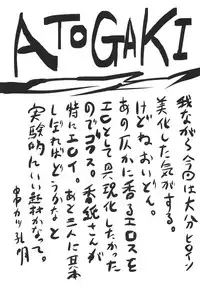 ATOGAKI
我ながら今回は大分ヒロイン
美化した気がする。
けどねおいどん。
あの仄かに香るエロスを
エロとして具現化したかった
のでゴワス。さんが
特にエロイ。あと三人に基本
しぼればどうかな。と
実験的にいい題材かなって。
串カツ孔明